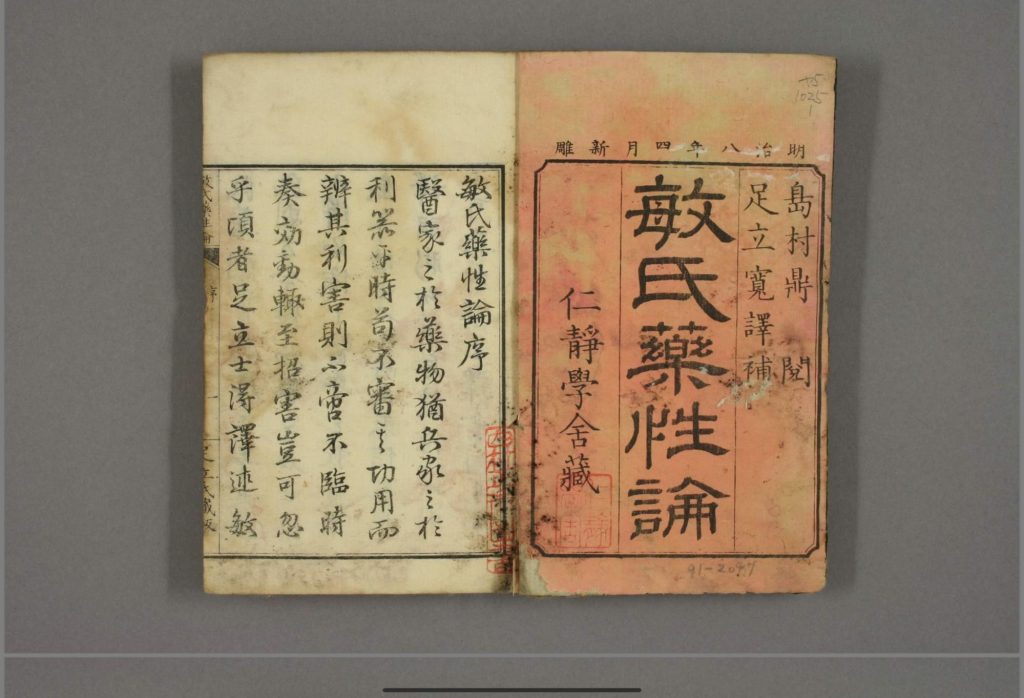 明治八年四月新雕
島村鼎 閲
足立寬譯補
敏氏藥性論
仁靜學舍藏
95
1025
1
91-2097
敏氏藥性論序
醫家之於藥物猶兵家之於
利器平時苟不審其功用而
辨其利害則不啻不臨時
奏効動輙至招害豈可忽
乎頃者足立士得譯述敏